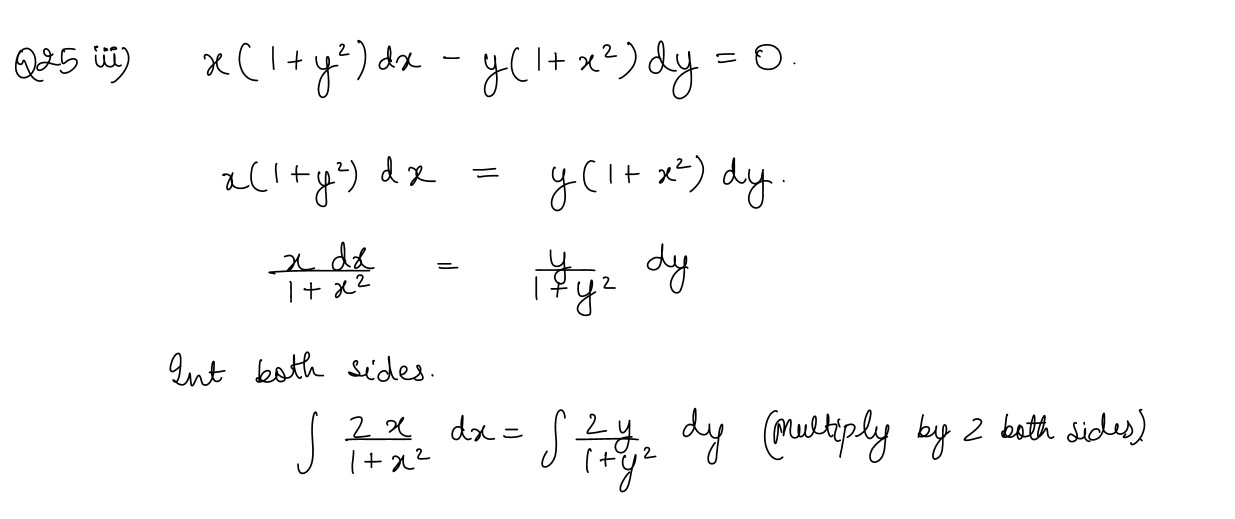 Q25 iii) x(1+y²)dx - y(1+x²)dy = 0.
x(1+y²) dx = y(1+x²) dy.
x dx / 1+x² = y / 1+y² dy
Int both sides.
∫ 2x / 1+x² dx = ∫ 2y / 1+y² dy (Multiply by 2 both sides)